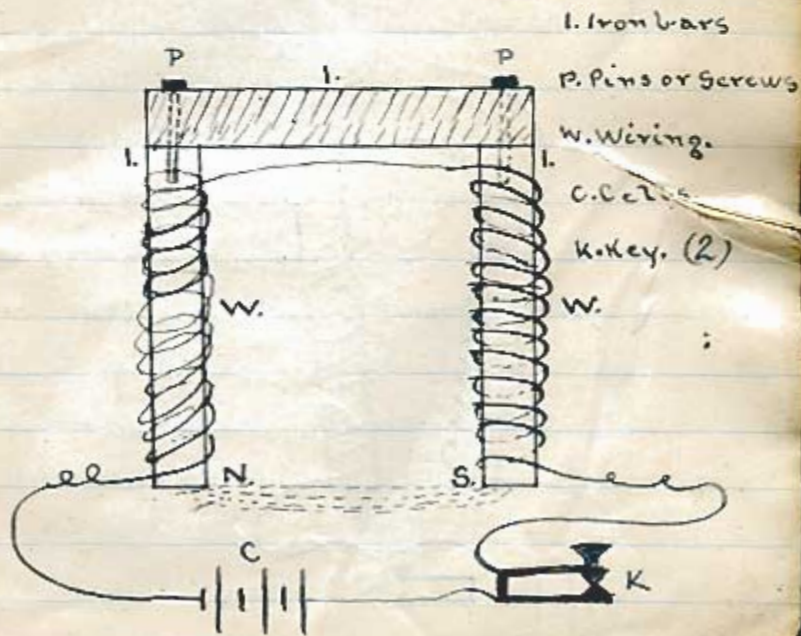 I. Iron bars
P. Pins or Screws
W. Wiring.
C. Cells
K. Key. (2)
P
P
I.
I.
I.
W.
W.
N.
S.
C
K